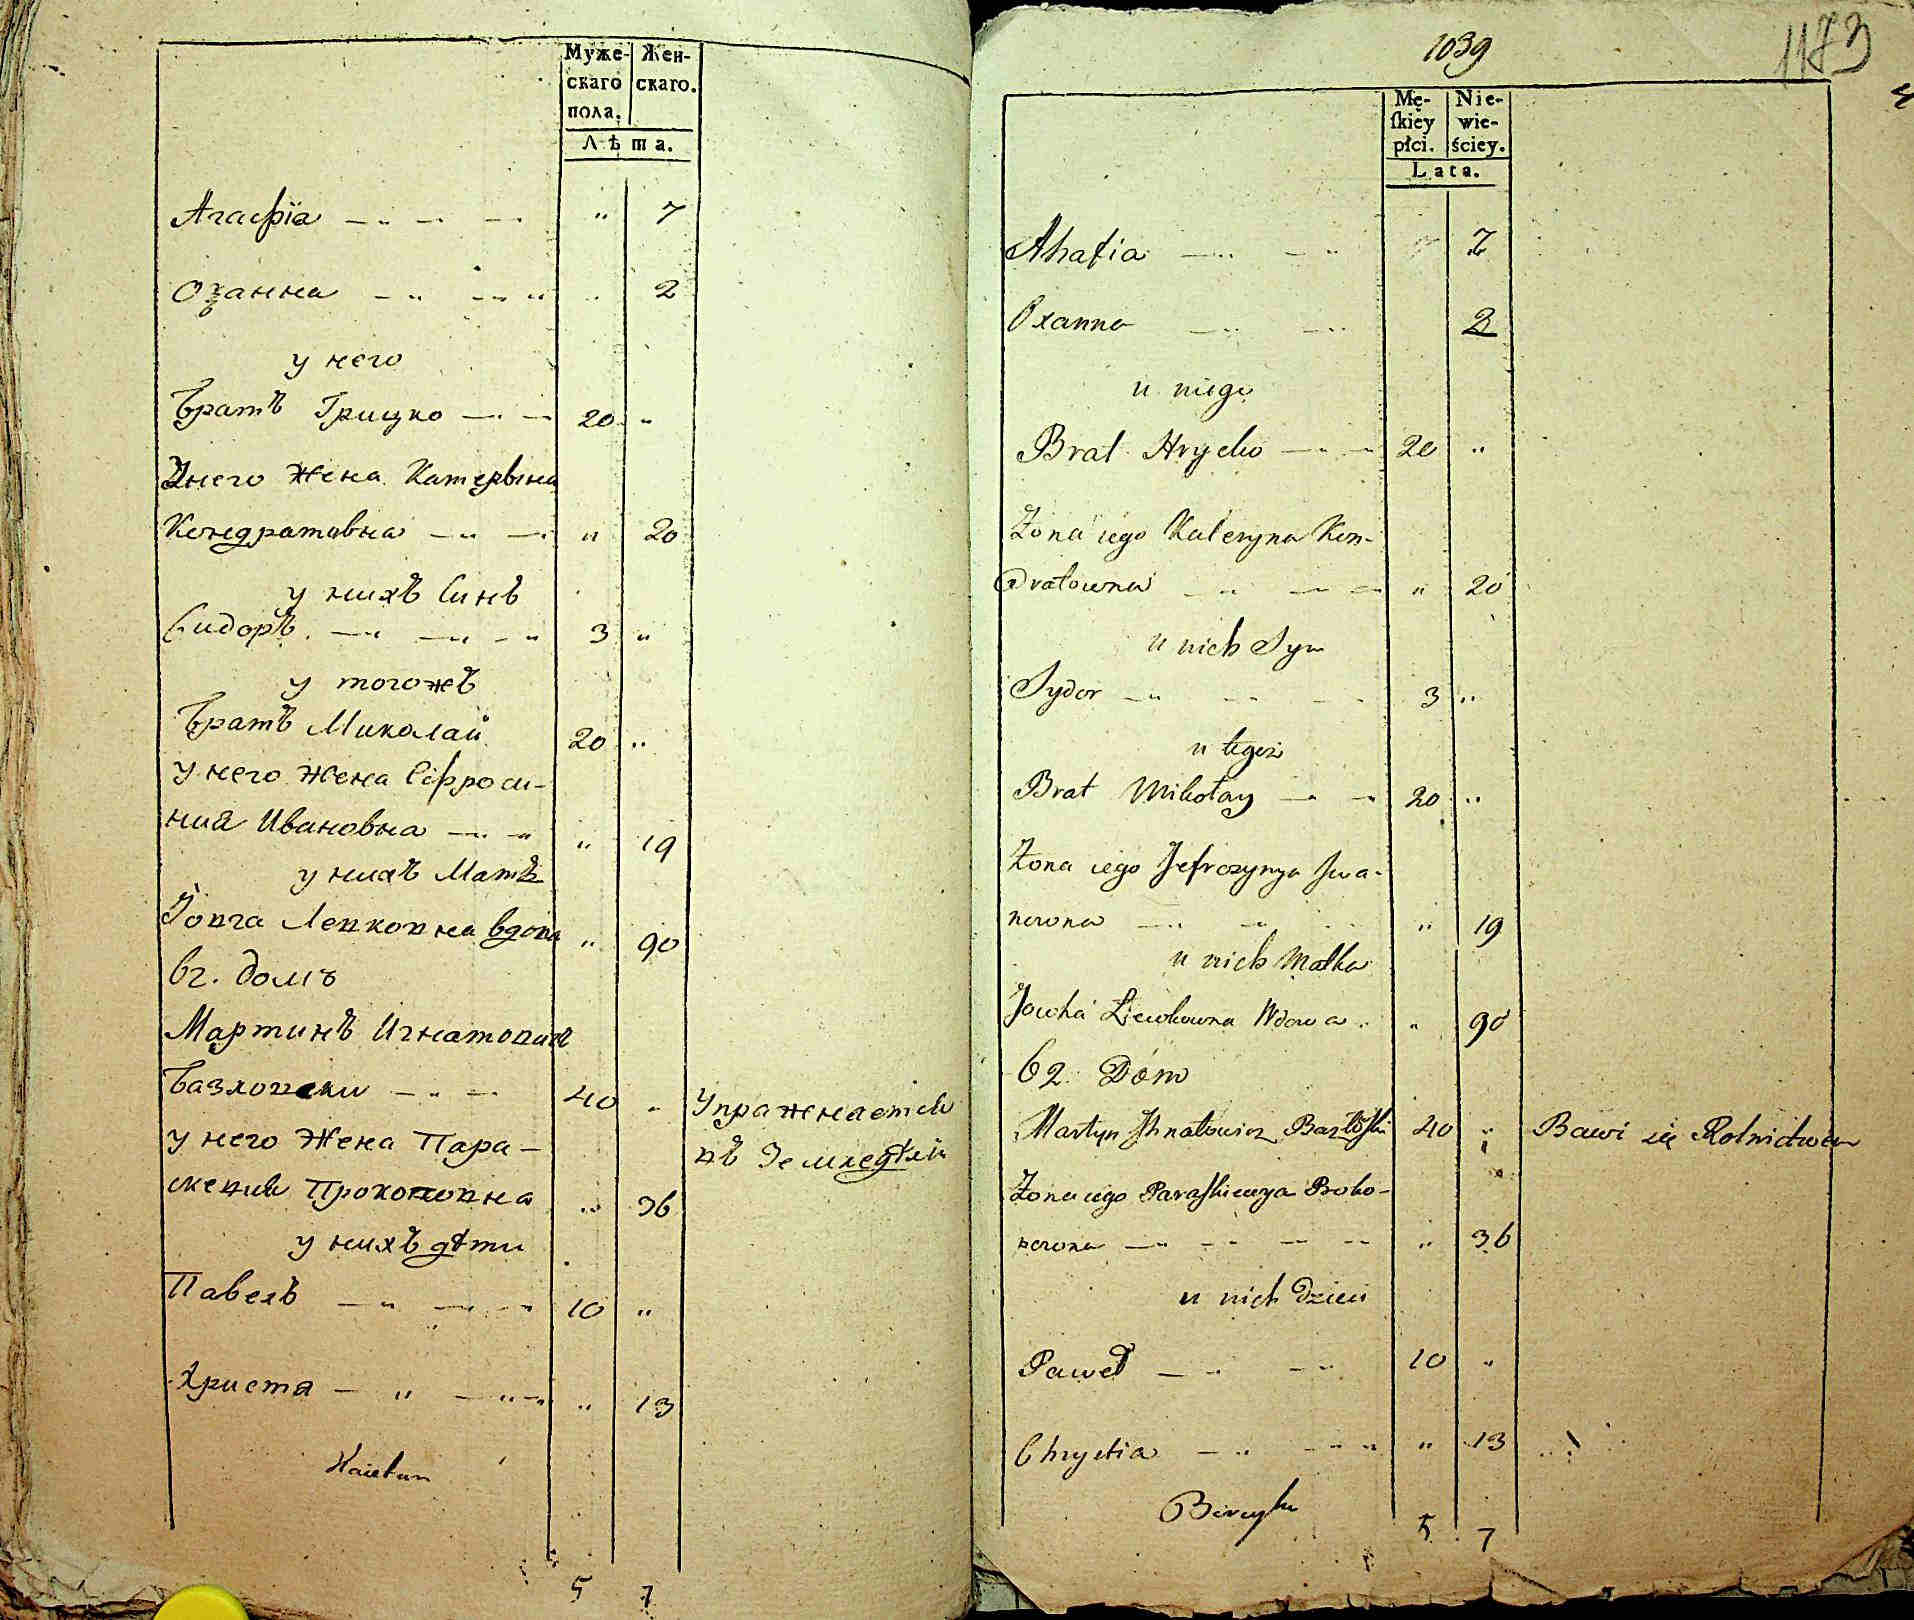 Муже-
скаго
пола.
Жен-
скаго.
Лѣта.
Агафія — „ — „ — „ 7
Оѯанна — „ — „ „ 2
у него
Братъ Грицко — „ — 20 „
Унего Жена Катерына
Кондратовна — „ — „ 20
у нихъ Синъ
Сидоръ — „ — „ — „ 3 „
у тогожъ
Братъ Миколай 20 „
у него Жена Єфроси-
ния Ивановна — „ — „ 19
у нихъ Матъ
Іовга Левковна вдова „ 90
62. домъ
Мартинъ Игнатовичъ
Базловски — „ — 40 „ Упражнается
у него Жена Пара- въ Земледѣліи
скевия Проковвна „ 36
у нихъ дѣти
Павелъ — „ — „ — „ 10 „
Христя — „ — „ — „ 13
Kaietan
5 7
1039
1173
Mę-
ſkiey
płci.
Nie-
wie-
ściey.
Lata.
Ahafia — „ — „ „ 7
Oxanna — „ — „ 2
u niego
Brat Hryćko — „ — 20 „
Żona iego Kateryna Kon-
dratowna — „ — „ 20
u nich Syn
Sydor — „ — — 3 „
u tegoż
Brat Mikołay — „ — 20 „
Żona iego Jefrozynya Jwa-
nowna — „ — „ 19
u nich Matka
Jowha Liewkowna Wdowa „ 90
62. Dom
Martyn Jhnatowicz Bazłoſki 40 „ Bawi się Rolnictwem
Żona iego Paraſkiewya Proko-
powna — „ — — — „ 36
u nich Dzieci
Paweł — „ — „ 10 „
Chrystia — „ — „ „ 13
5 7